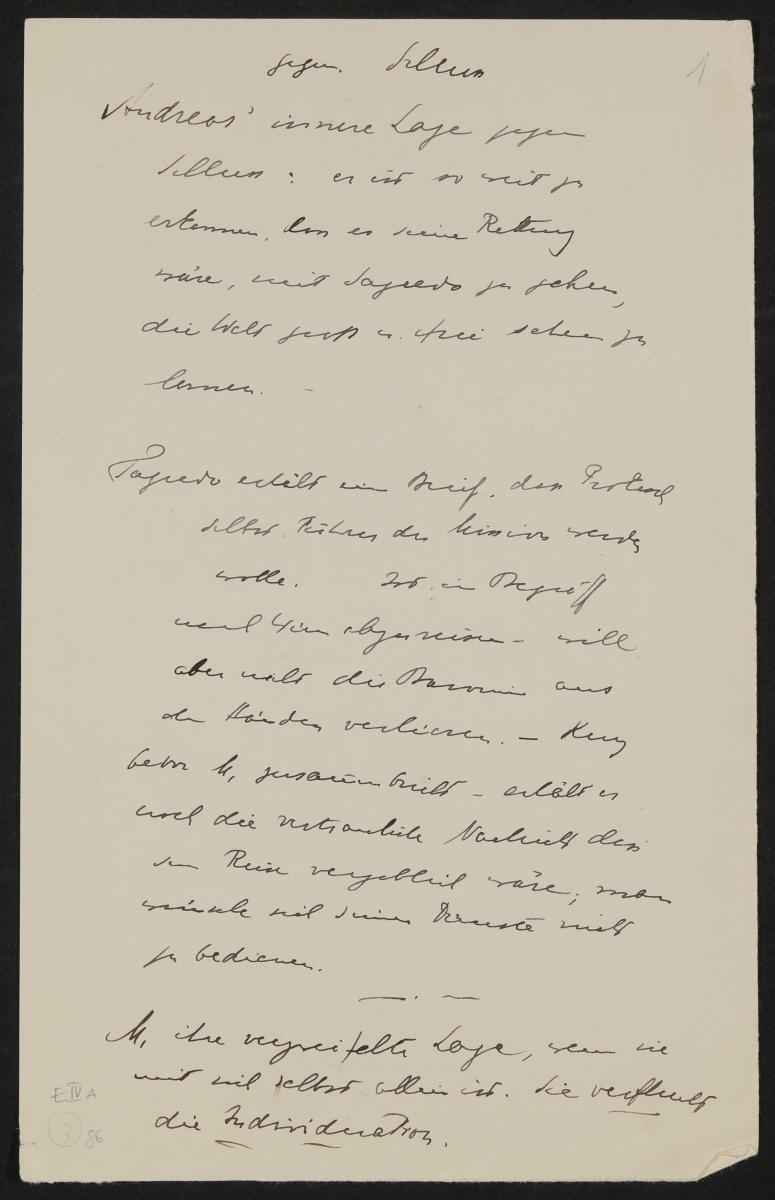 gegen Schluss
1
Andreas' innere Lage gegen
Schluss: er ist so weit zu
erkennen, dass es seine Rettung
wäre, mit Sagredo zu gehen,
die Welt gross u. frei sehen zu
lernen. –
Sagredo erhält ein Brief, dass
selbst Führer der Mission werden
wolle. Ist im Begriff
nach Wien abzureisen – will
aber nicht die Baronin aus
den Händen verlieren. – Kurz
bevor M, zusammenbricht – erhält er
noch die vertrauliche Nachricht dass
seine Reise vergeblich wäre; man
wünsche sich seiner Dienste nicht
zu bedienen.
M, ihre verzweifelte Lage, wenn sie
mit sich selbst allein ist. Sie verflucht
die Individuation.
E IV A
3
86